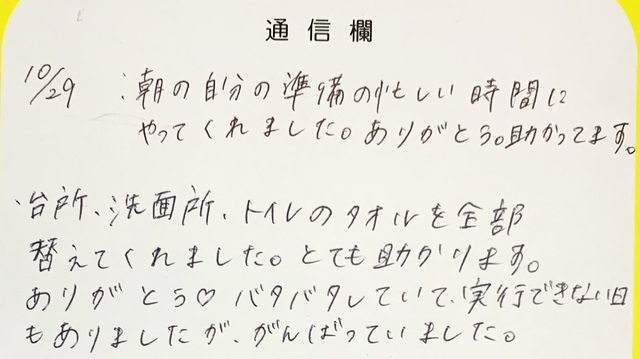 通信欄
10/29 :朝の自分の準備の忙しい時間に
やってくれました。ありがとう。助かってます。
・台所、洗面所、トイレのタオルを全部
替えてくれました。とても助かります。
ありがとう♡ バタバタしていて、実行できない日
もありましたが、がんばっていました。